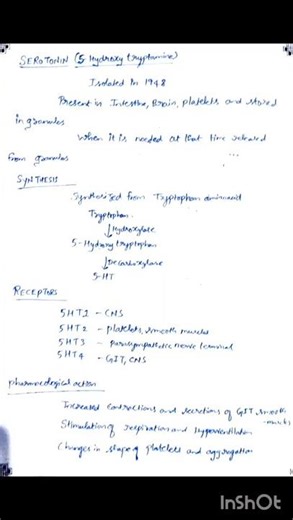 SEROTONIN (5 Hydroxy tryptamine)
Isolated in 1948
Present in Intestine, Brain, platelets and stored
in granules
When it is needed at that time released
from granules
...
SYNTHESIS
Synthesized from Tryptophan aminoacid
Tryptophan
↓ Hydroxylase
5-Hydroxy tryptophan
↓ Decarboxylase
5-HT
RECEPTORS
5HT1 - CNS
5HT2 - platelets, smooth muscles
5HT3 - parasympathetic nerve terminal
5HT4 - GIT, CNS
pharmacological action
Increased contractions and secretions of GIT, smooth
muscles
Stimulation of respiration and Hyperventilation
Changes in shape of platelets and aggregation
InShOt